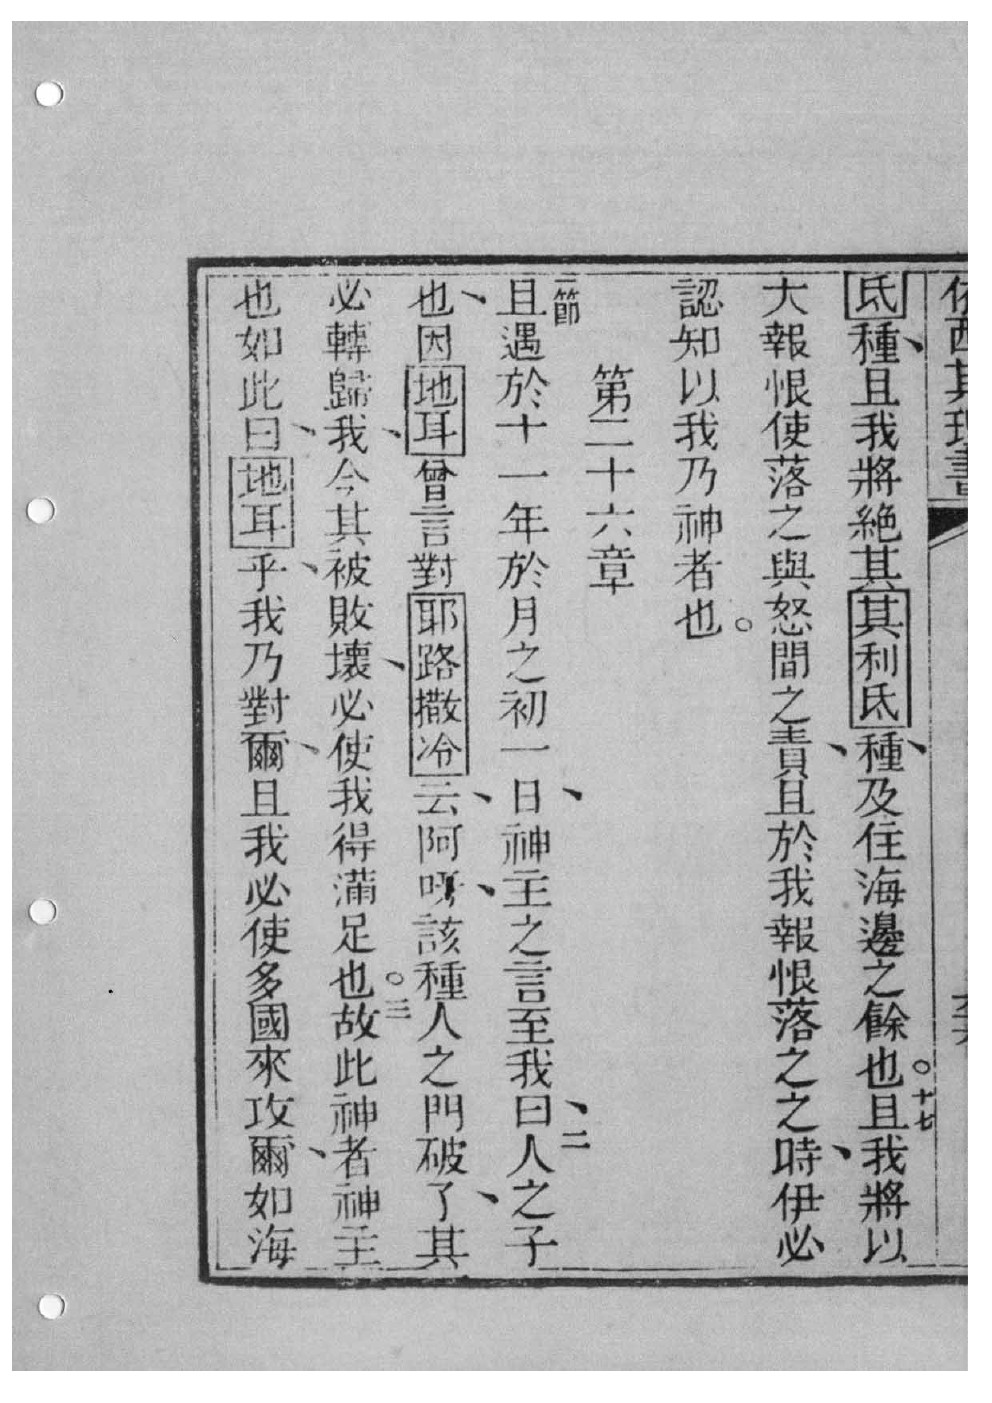 依西其理書
氐種、且我將絕其其利氐種、及住海邊之餘也。十七且我將以
大報恨使落之與怒間之責、且於我報恨落之之時、伊必
認知以我乃神者也。
第二十六章
一節且遇於十一年於月之初一日、神主之言至我曰、二人之子
也、因地耳曾言對耶路撒冷云、阿呀、該種人之門破了、其
必轉歸我、今其被敗壞、必使我得滿足也。三故此神者神主
也如此曰、地耳乎、我乃對爾、且我必使多國來攻爾、如海